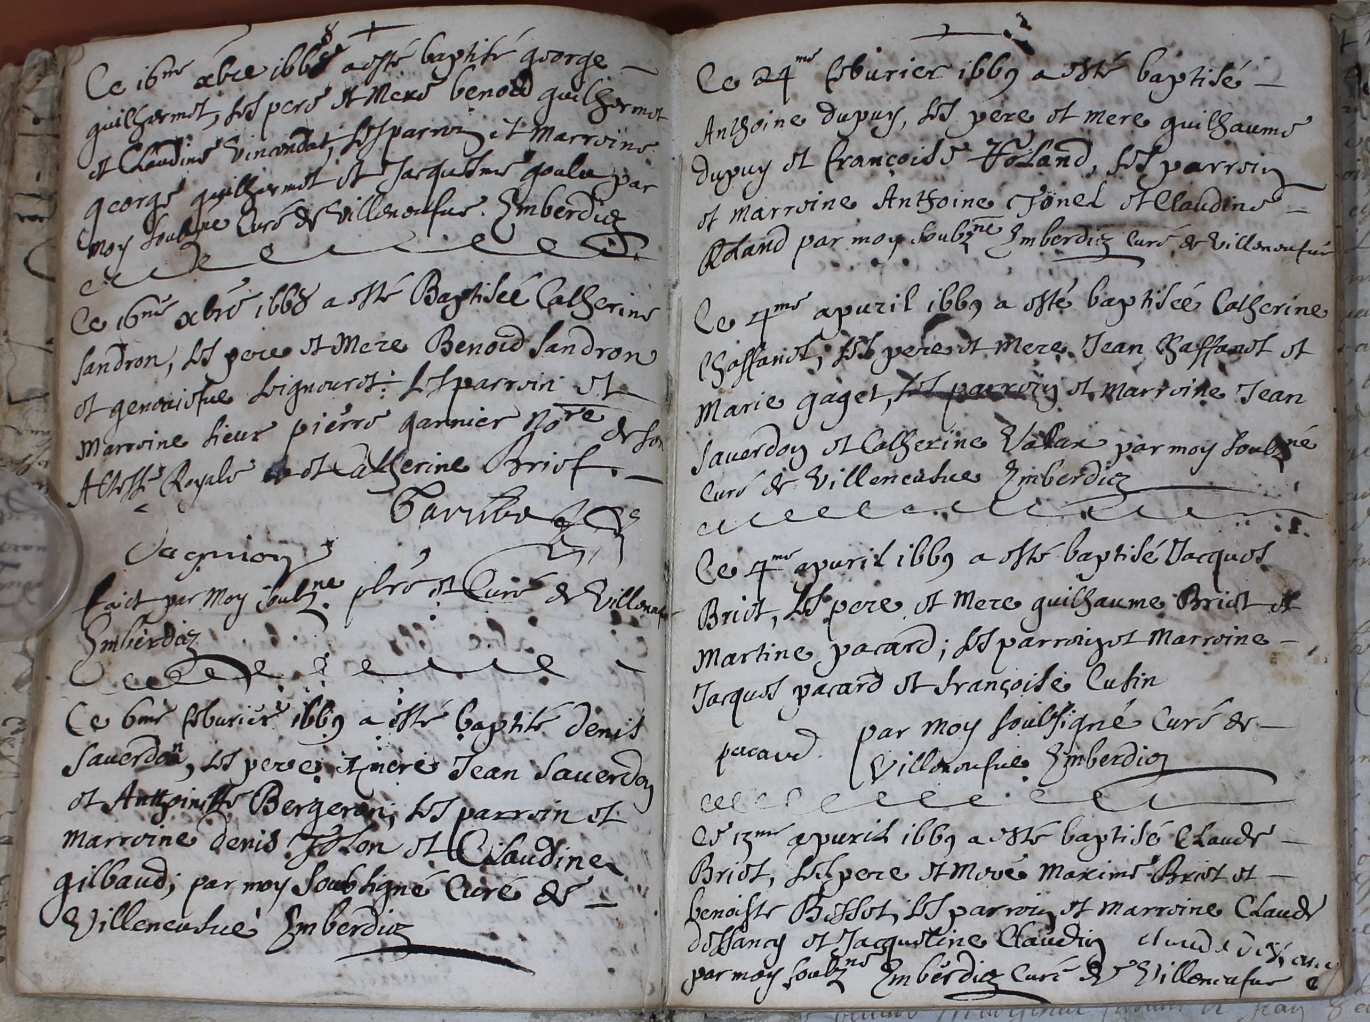 Ce 16me xbre 1668 a esté baptisé george
guilhermet, ses pere et Mere benoid guilhermet
et Claudine Vincendat, ses parrin et Marroine
george guilhermet et Jacquesme goulu par
moy soubne Curé de Villeneufue. Imberdiez
Ce 16me xbre 1668 a esté Baptiseé Catherine
Sandron, ses pere et Mere Benoid Sandron
et geneuiefue Loignouret: ses parroin et
Marroine Sieur pierre garnier Nore de son
Altesse Royale et Catherine Briet.
Jacquion
faict par Moy soubzne pbre et Curé de Villeneufue
Imberdiez
Ce 6me feburier 1669 a esté baptisé denis
Sauerdon, ses pere et mere Jean Sauerdon
et Anthoinette Bergeron, ses parroin et
Marroine denis et Claudine
gilbaud, par moy Soubsigné Curé de
Villeneufue Imberdiez
Ce 24me feburier 1669 a esté baptisé
Anthoine dupuy, ses pere et mere guilhaume
dupuy et françoise Roland, ses parroin
et marroine Anthoine et Claudine
Roland par moy soubzne Imberdiez Curé de Villeneufue
Ce 4me apuril 1669 a esté baptiseé Catherine
Chaffanet, ses pere et mere Jean Chaffanet et
Marie gaget, ses parroin et marroine Jean
Sauerdon et Catherine par moy soubzné
Curé de Villeneufue Imberdiez
Ce 4me apuril 1669 a esté baptisé Jacques
Briet, ses pere et Mere guilhaume Briet et
Martine pacard; ses parroin et Marroine
Jacques pacard et françoise Cusin
par moy soubsigné Curé de
pacard. Villeneufue Imberdiez
Ce 13me apuril 1669 a esté baptisé Claude
Briet, ses pere et Mere Maxime Briet et
benoiste Bossot, ses parroin et marroine Claude
deffancy et Jacqueline Claudin
par moy soubzne Imberdiez Curé de Villeneufue